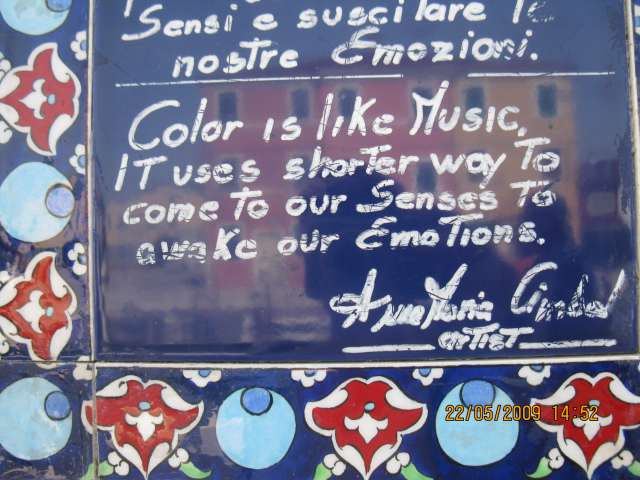 Sensi e suscitare le
nostre Emozioni.
Color is like Music,
IT uses shorter way To
come To our Senses To
awake our EmoTions.
artist
22/05/2009 14:52